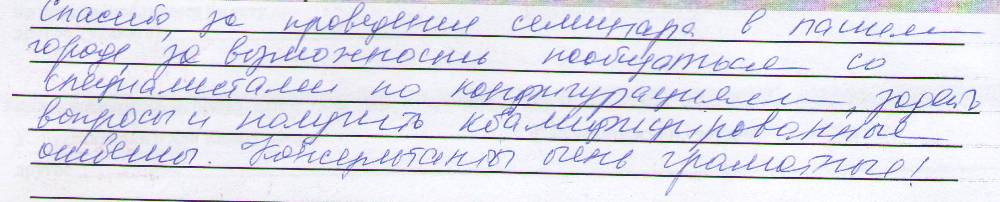 Спасибо за проведение семинара в нашем
городе, за возможность пообщаться со
специалистами по конфигурациям, задать
вопросы и получить квалифицированные
ответы. Консультанты очень грамотные!